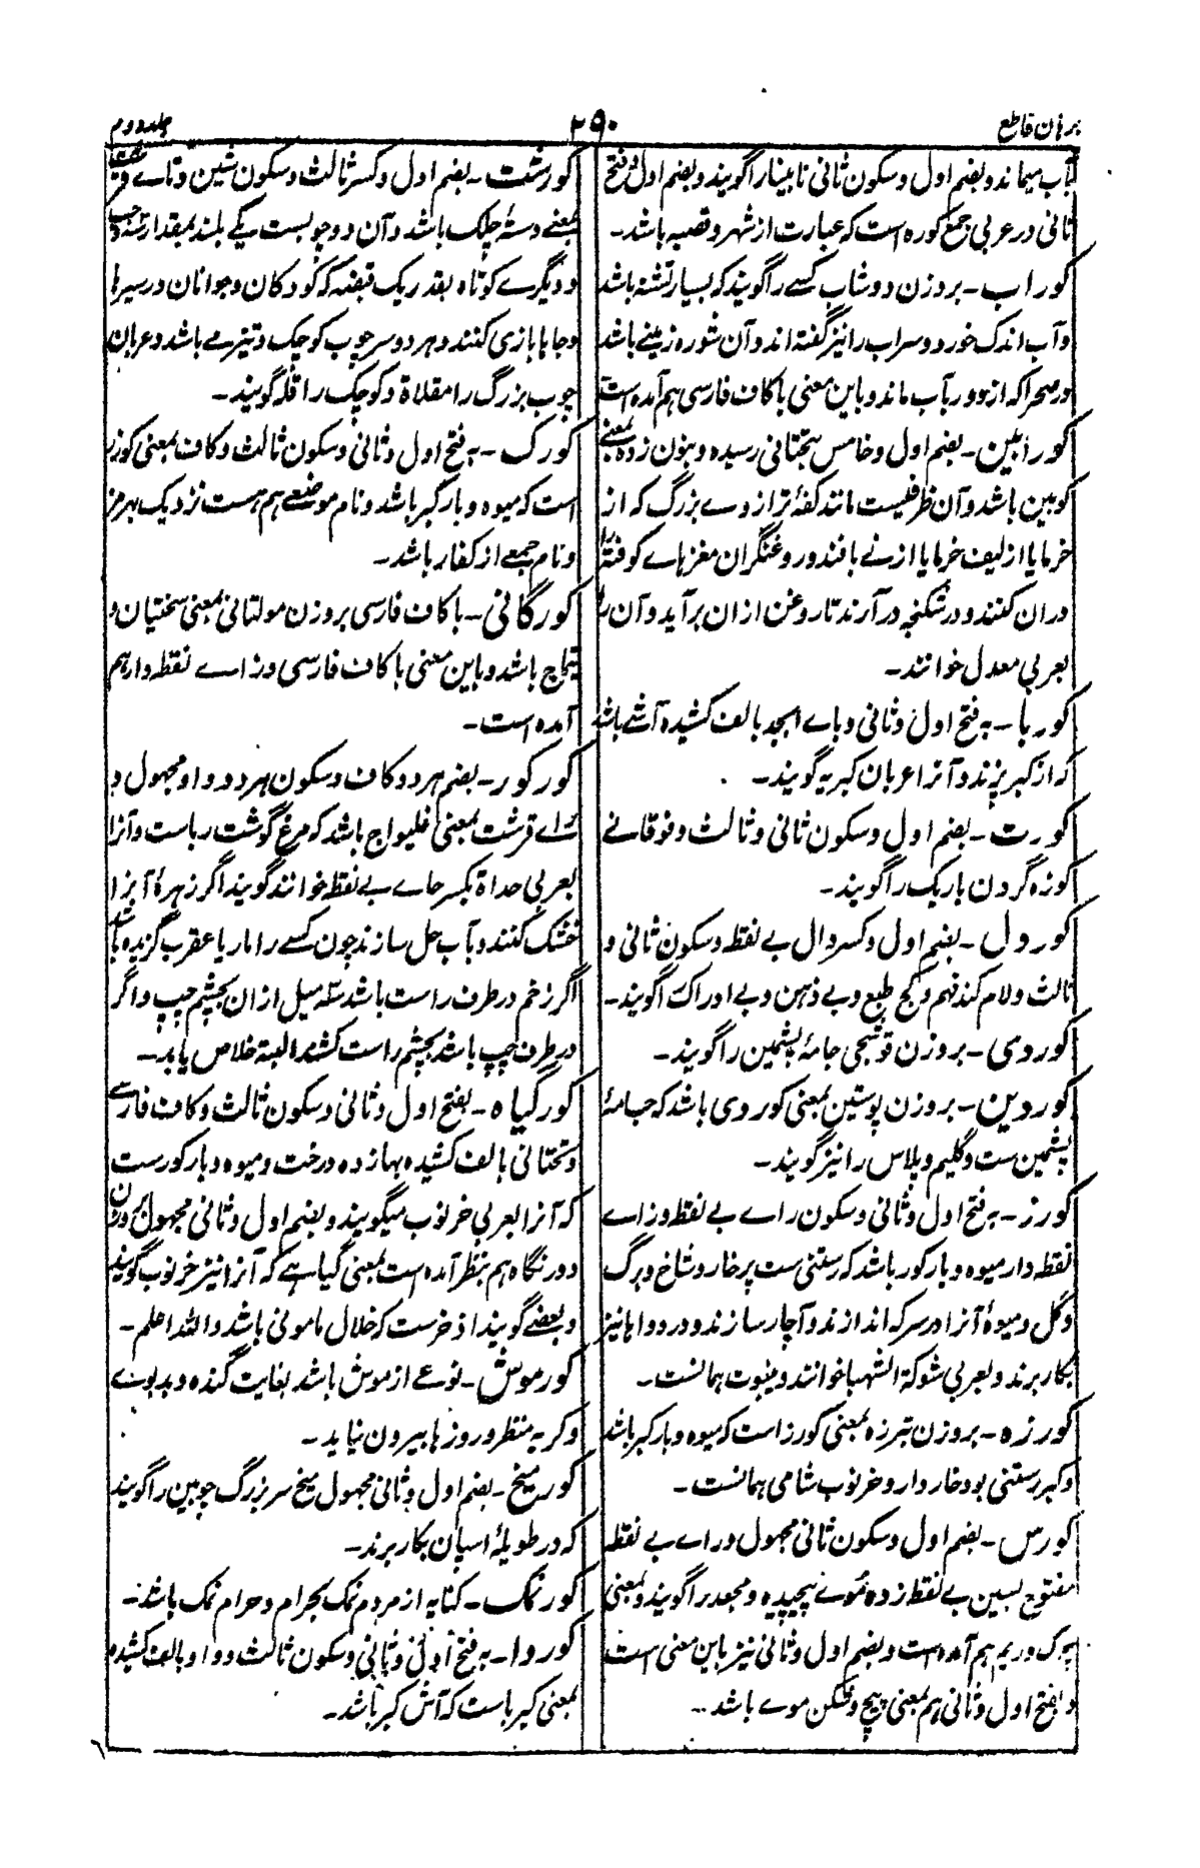 برهان قاطع
۲۹۰
جلد دوم
بآب سیماند و بضم اول و سکون ثانی نابینا را گویند و بضم اول و فتح
ثانی در عربی جمع کوره است که عبارت از شهر و قصبه باشد۔
کوراب۔ بروزن دوشاب کسے را گویند که بسیار تشنه باشد
و آب اندک خورد و سراب را نیز گفته اند و آن شوره زمینے باشد
در صحرا که از دور بآب ماند و باین معنی با کاف فارسی هم آمده است
کورابین۔ بضم اول و خامس بتحتانی رسیده و بنون زده بمعنے
کوبین باشد و آن ظرفیست مانند کفهٔ ترازوے بزرگ که از
خرما یا از لیف خرما یا از نے بافند و روغنگران مغزهاے کوفته را
دران کنند و در شکنجه در آرند تا روغن ازان برآید و آن را
بعربی معدل خوانند۔
کوربا۔ به فتح اول و ثانی و باے ابجد بالف کشیده آشے باشد
که از کبر پزند و آنرا عربان کبریه گویند۔
کورت۔ بضم اول و سکون ثانی و ثالث و فوقانے
کوزه گردن باریک را گویند۔
کوردل۔ بضم اول و کسر دال بے نقطه و سکون ثانی و
ثالث و لام کند فهم و کج طبع و بے ذهن و بے ادراک را گویند۔
کوردی۔ بروزن توشجی جامهٔ پشمین را گویند۔
کوردین۔ بروزن پوستین بمعنی کوردی باشد که جامهٔ
پشمین ست و گلیم و پلاس را نیز گویند۔
کورز۔ به فتح اول و ثانی و سکون راے بے نقطه و زاے
نقطه دار میوه و بار کور باشد که رستنی ست پر خار و شاخ و برگ
و گل و میوهٔ آنرا در سرکه اندازند و آچار سازند و در دواها نیز
بکار برند و بعربی شوکة الشهبا خوانند و ینبوت همانست۔
کورزه۔ بروزن تبرزه بمعنی کورز است که میوه و بار کبر باشد
و کبر رستنی بود خاردار و خرنوب شامی همانست۔
کورس۔ بضم اول و سکون ثانی مجهول و راے بے نقطه
مفتوح بسین بے نقطه زده موے پیچیده و مجعد را گویند و بمعنی
چرک و ریم هم آمده است و بضم اول و ثانی نیز باین معنی است
و بفتح اول و ثانی هم بمعنی پیچ و شکن موے باشد۔
کورشت۔ بضم اول و کسر ثالث و سکون شین و تاے قرشت
بمعنے دستهٔ چلک باشد و آن دو چوبست یکے بلند بمقدار سه وجب
و دیگرے کوتاه بقدر یک قبضه که کودکان و جوانان در سیرها
و جاها بازی کنند و هر دو سر چوب کوچک و تیزے باشد و عربان
چوب بزرگ را مقلاة و کوچک را قله گویند۔
کورک۔ به فتح اول و ثانی و سکون ثالث و کاف بمعنی کورز
است که میوه و بار کبر باشد و نام موضعے هم هست نزدیک بهرمز
و نام جمعے از کفار باشد۔
کورگانی۔ با کاف فارسی بروزن مولتانی بمعنی سختیان و
تیماج باشد و باین معنی با کاف فارسی و زاے نقطه دار هم
آمده است۔
کورکور۔ بضم هر دو کاف و سکون هر دو واو مجهول و
راے قرشت بمعنی غلیواج باشد که مرغ گوشت رباست و آنرا
بعربی حداة بکسر حاے بے نقطه خوانند گویند اگر زهرهٔ آنرا
خشک کنند و بآب حل سازند چون کسے را مار یا عقرب گزیده باشد
اگر زخم در طرف راست باشد سه میل ازان بچشم چپ و اگر
در طرف چپ باشد بچشم راست کشند البته خلاص یابد۔
کورگیاه۔ بفتح اول و ثانی و سکون ثالث و کاف فارسے
و تحتانی بالف کشیده بهازده درخت و میوه و بار کورست
که آنرا بعربی خرنوب میگویند و بضم اول و ثانی مجهول بروزن
دورنگاه هم بنظر آمده است بمعنی گیاهے که آنرا نیز خرنوب گویند
و بعضے گویند اذخرست که خلال مامونی باشد والله اعلم۔
کورموش۔ نوعے از موش باشد بغایت گنده و بدبوے
و کریه منظر و روزها بیرون نیاید۔
کورمیخ۔ بضم اول و ثانی مجهول میخ سر بزرگ چوبین را گویند
که در طویلهٔ اسپان بکار برند۔
کورنمک۔ کنایه از مردم نمک بحرام و حرام نمک باشد۔
کوروا۔ به فتح اول و ثانی و سکون ثالث و واو بالف کشیده
بمعنی کبرباست که آش کبر باشد۔